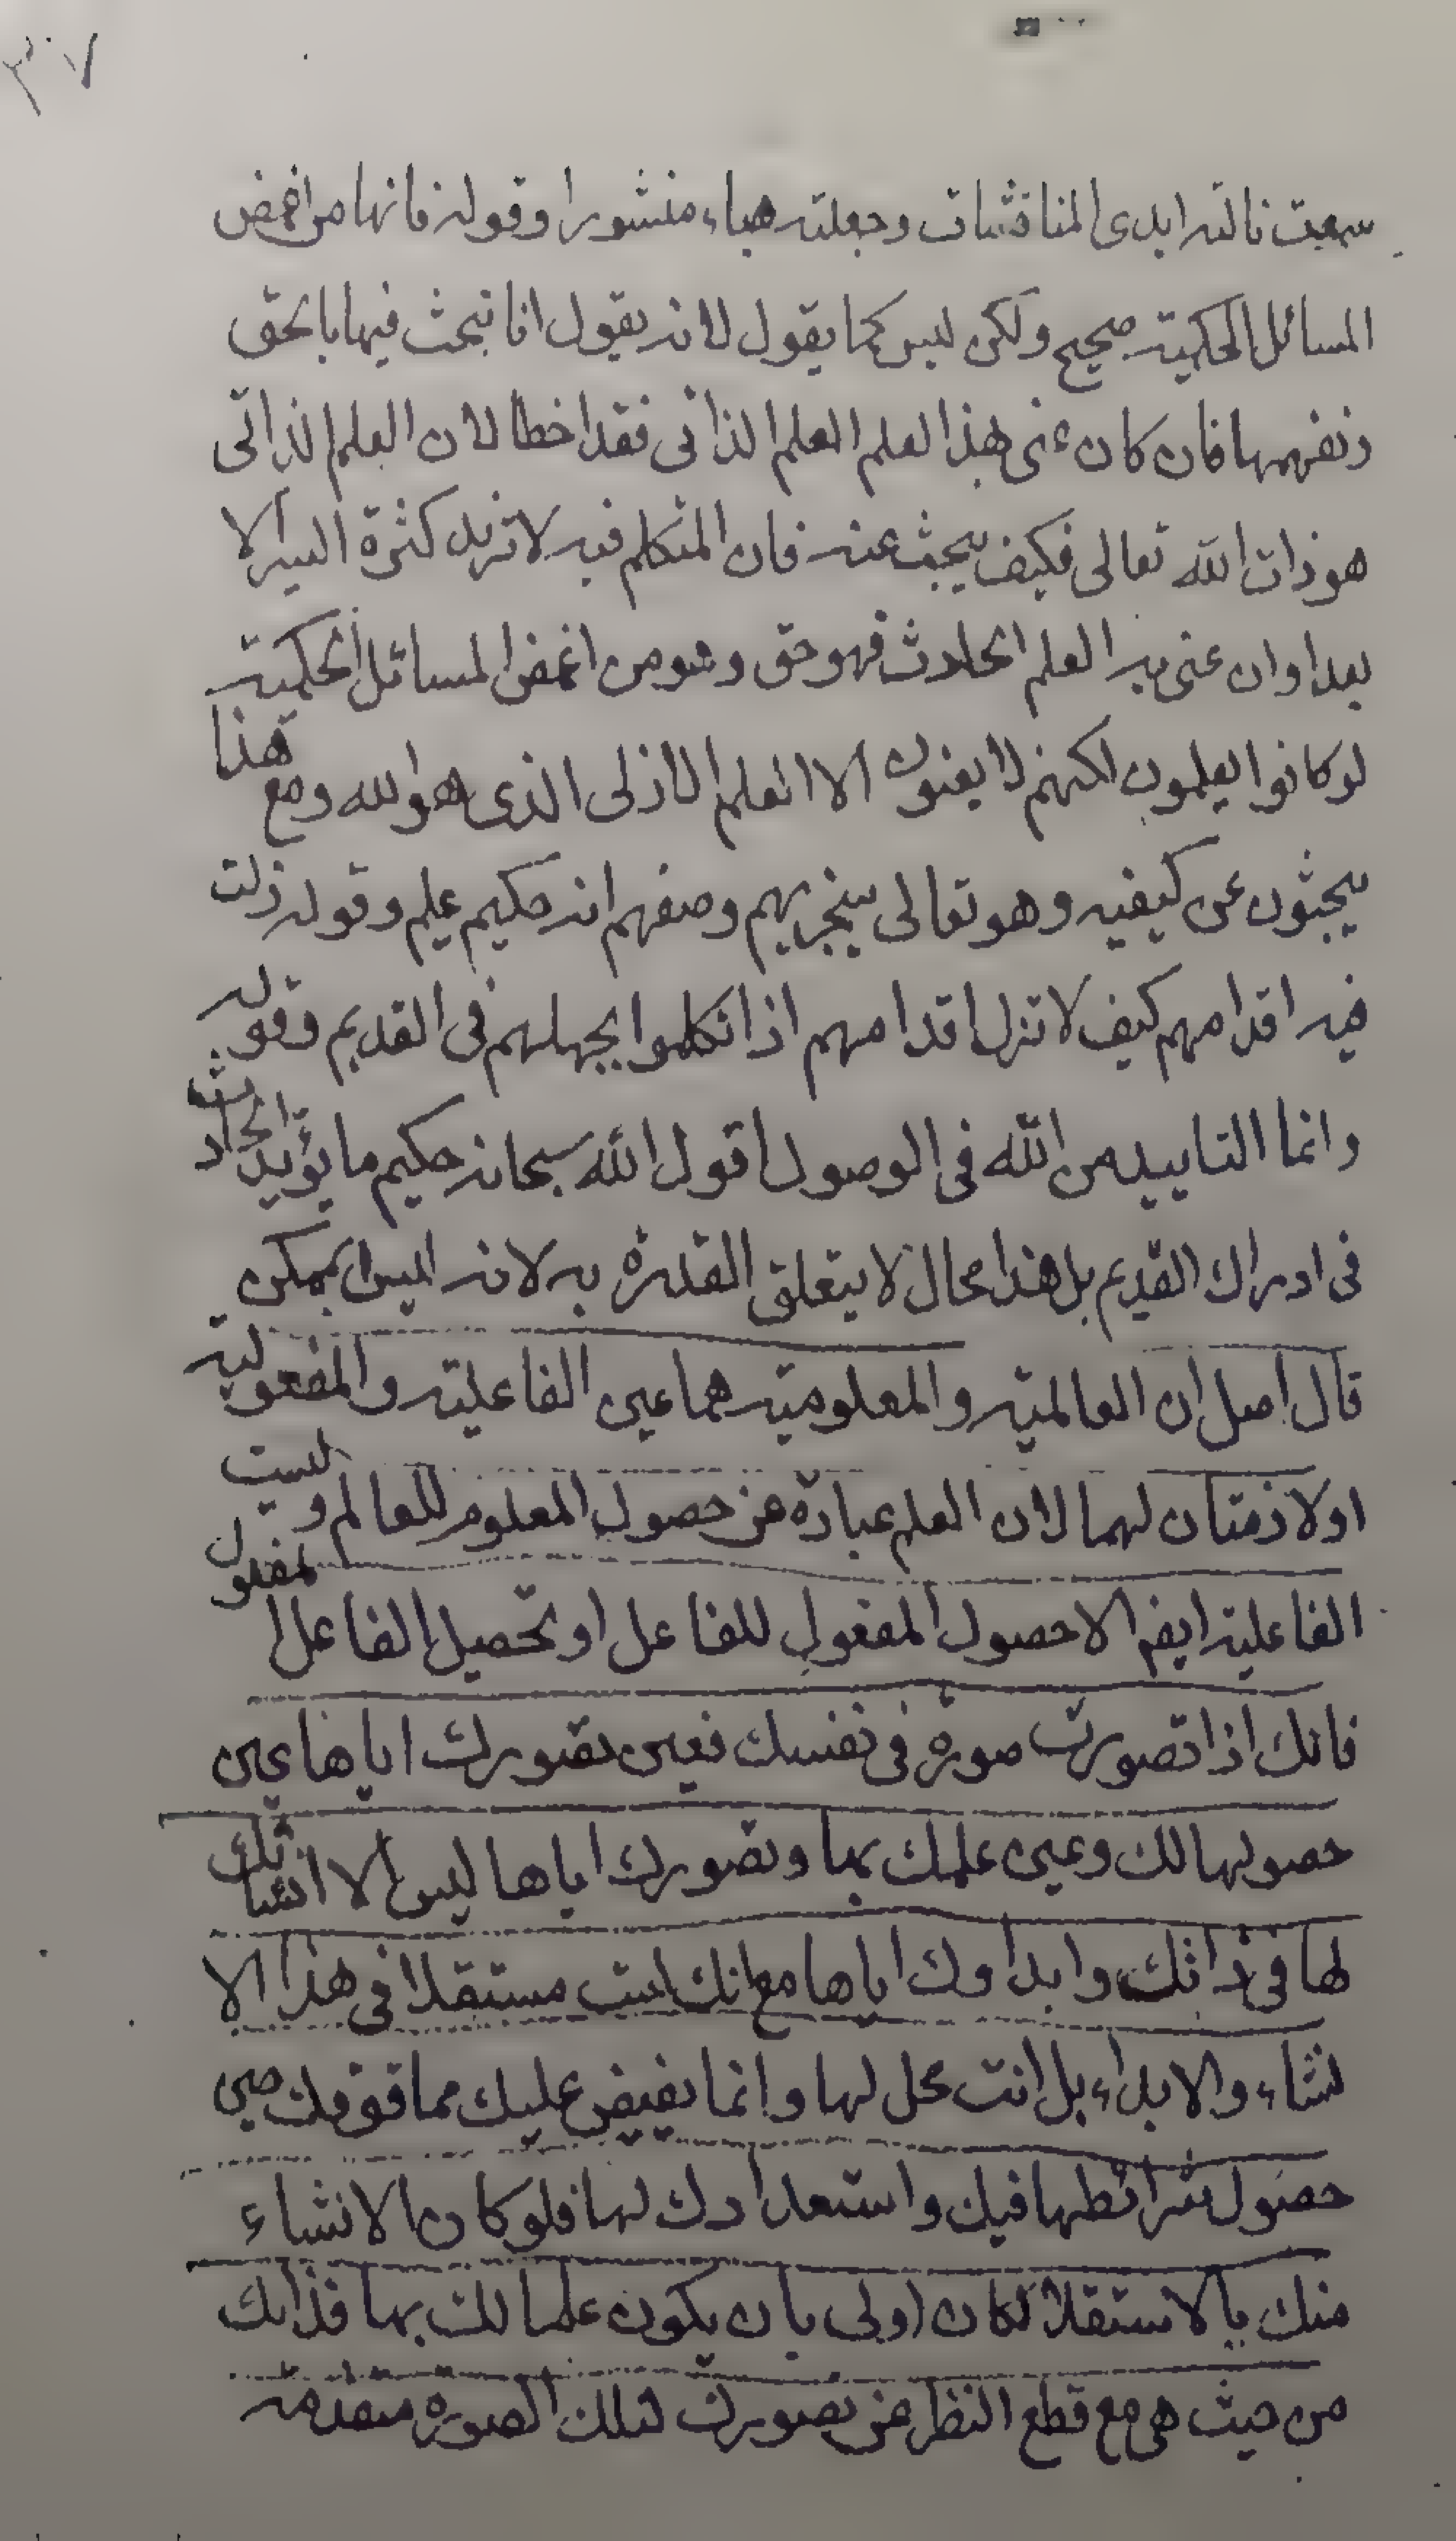 ٣٠٧
سمعت نالته ايدى المناقشات وجعلته هباء منشورا وقوله فانها من اغمض
المسائل الحكمية صحيح ولكن ليس كما يقول لانه يقول انا نبحث فيها بالحق
ونفهمها فان كان عنى بهذا العلم العلم الذاتى فقد اخطا لان العلم الذاتى
هو ذات الله تعالى فكيف يبحث عنه فان المتكلم فيه لا تزيد كثرة السير الا
بعدا وان عنى به العلم الحادث فهو حق وهو من اغمض المسائل الحكمية
لو كانوا يعلمون لكنهم لا يعنون الا العلم الازلى الذى هو الله ومع هذا
يبحثون عن كيفيه وهو تعالى سيجزيهم وصفهم انه حكيم عليم وقوله زلت
فيه اقدامهم كيف لا تزل اقدامهم اذا تكلموا بجهلهم فى القديم وقوله
وانما التاييد من الله فى الوصول اقول الله سبحانه حكيم ما يؤيد الحادث
فى ادراك القديم بل هذا محال لا يتعلق القدرة به لانه ليس بممكن
قال اصل ان العالمية والمعلومية هما عين الفاعلية والمفعولية
او لازمتان لهما لان العلم عبارة عن حصول المعلوم للعالم وليست
الفاعلية ايضا الا حصول المفعول للفاعل او تحصيل الفاعل المفعول
فانك اذا تصورت صورة فى نفسك فعين تصورك اياها عين
حصولها لك وعين علمك بها وتصورك اياها ليس الا انشائك
لها فى ذاتك وابداوك اياها مع انك لست مستقلا فى هذا الا
نشاء والابداء بل انت محل لها وانما يفيض عليك مما فوقك حين
حصول شرائطها فيك واستعدادك لها فلو كان الانشاء
منك بالاستقلال لكان اولى بان يكون علما لك بها فذاتك
من حيث هى مع قطع النظر عن تصورك لتلك الصورة متقدمة